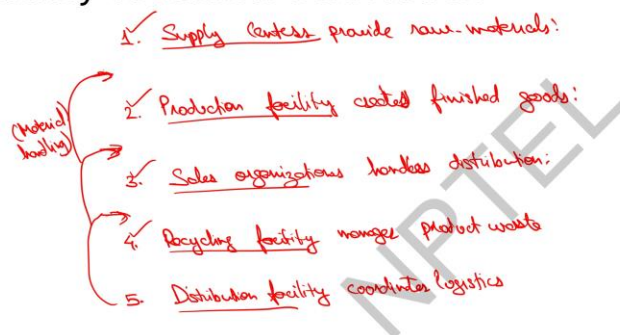 1. Supply Centers provide raw-materials:
2. Production facility created finished goods:
(Material handling)
3. Sales organizations handles distribution:
4. Recycling facility manages product waste
5. Distribution facility coordinates logistics
NPTEL